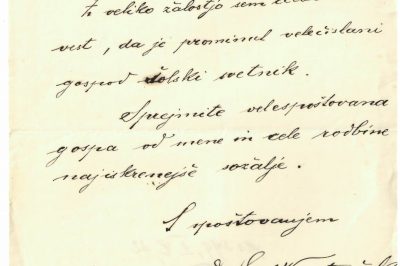 Z veliko žalostjo sem
vest, da je prominul velečislani
gospod šolski svetnik.
Sprejmite velespoštovana
gospa od mene in cele rodbine
najiskrenejše sožalje.
S spoštovanjem